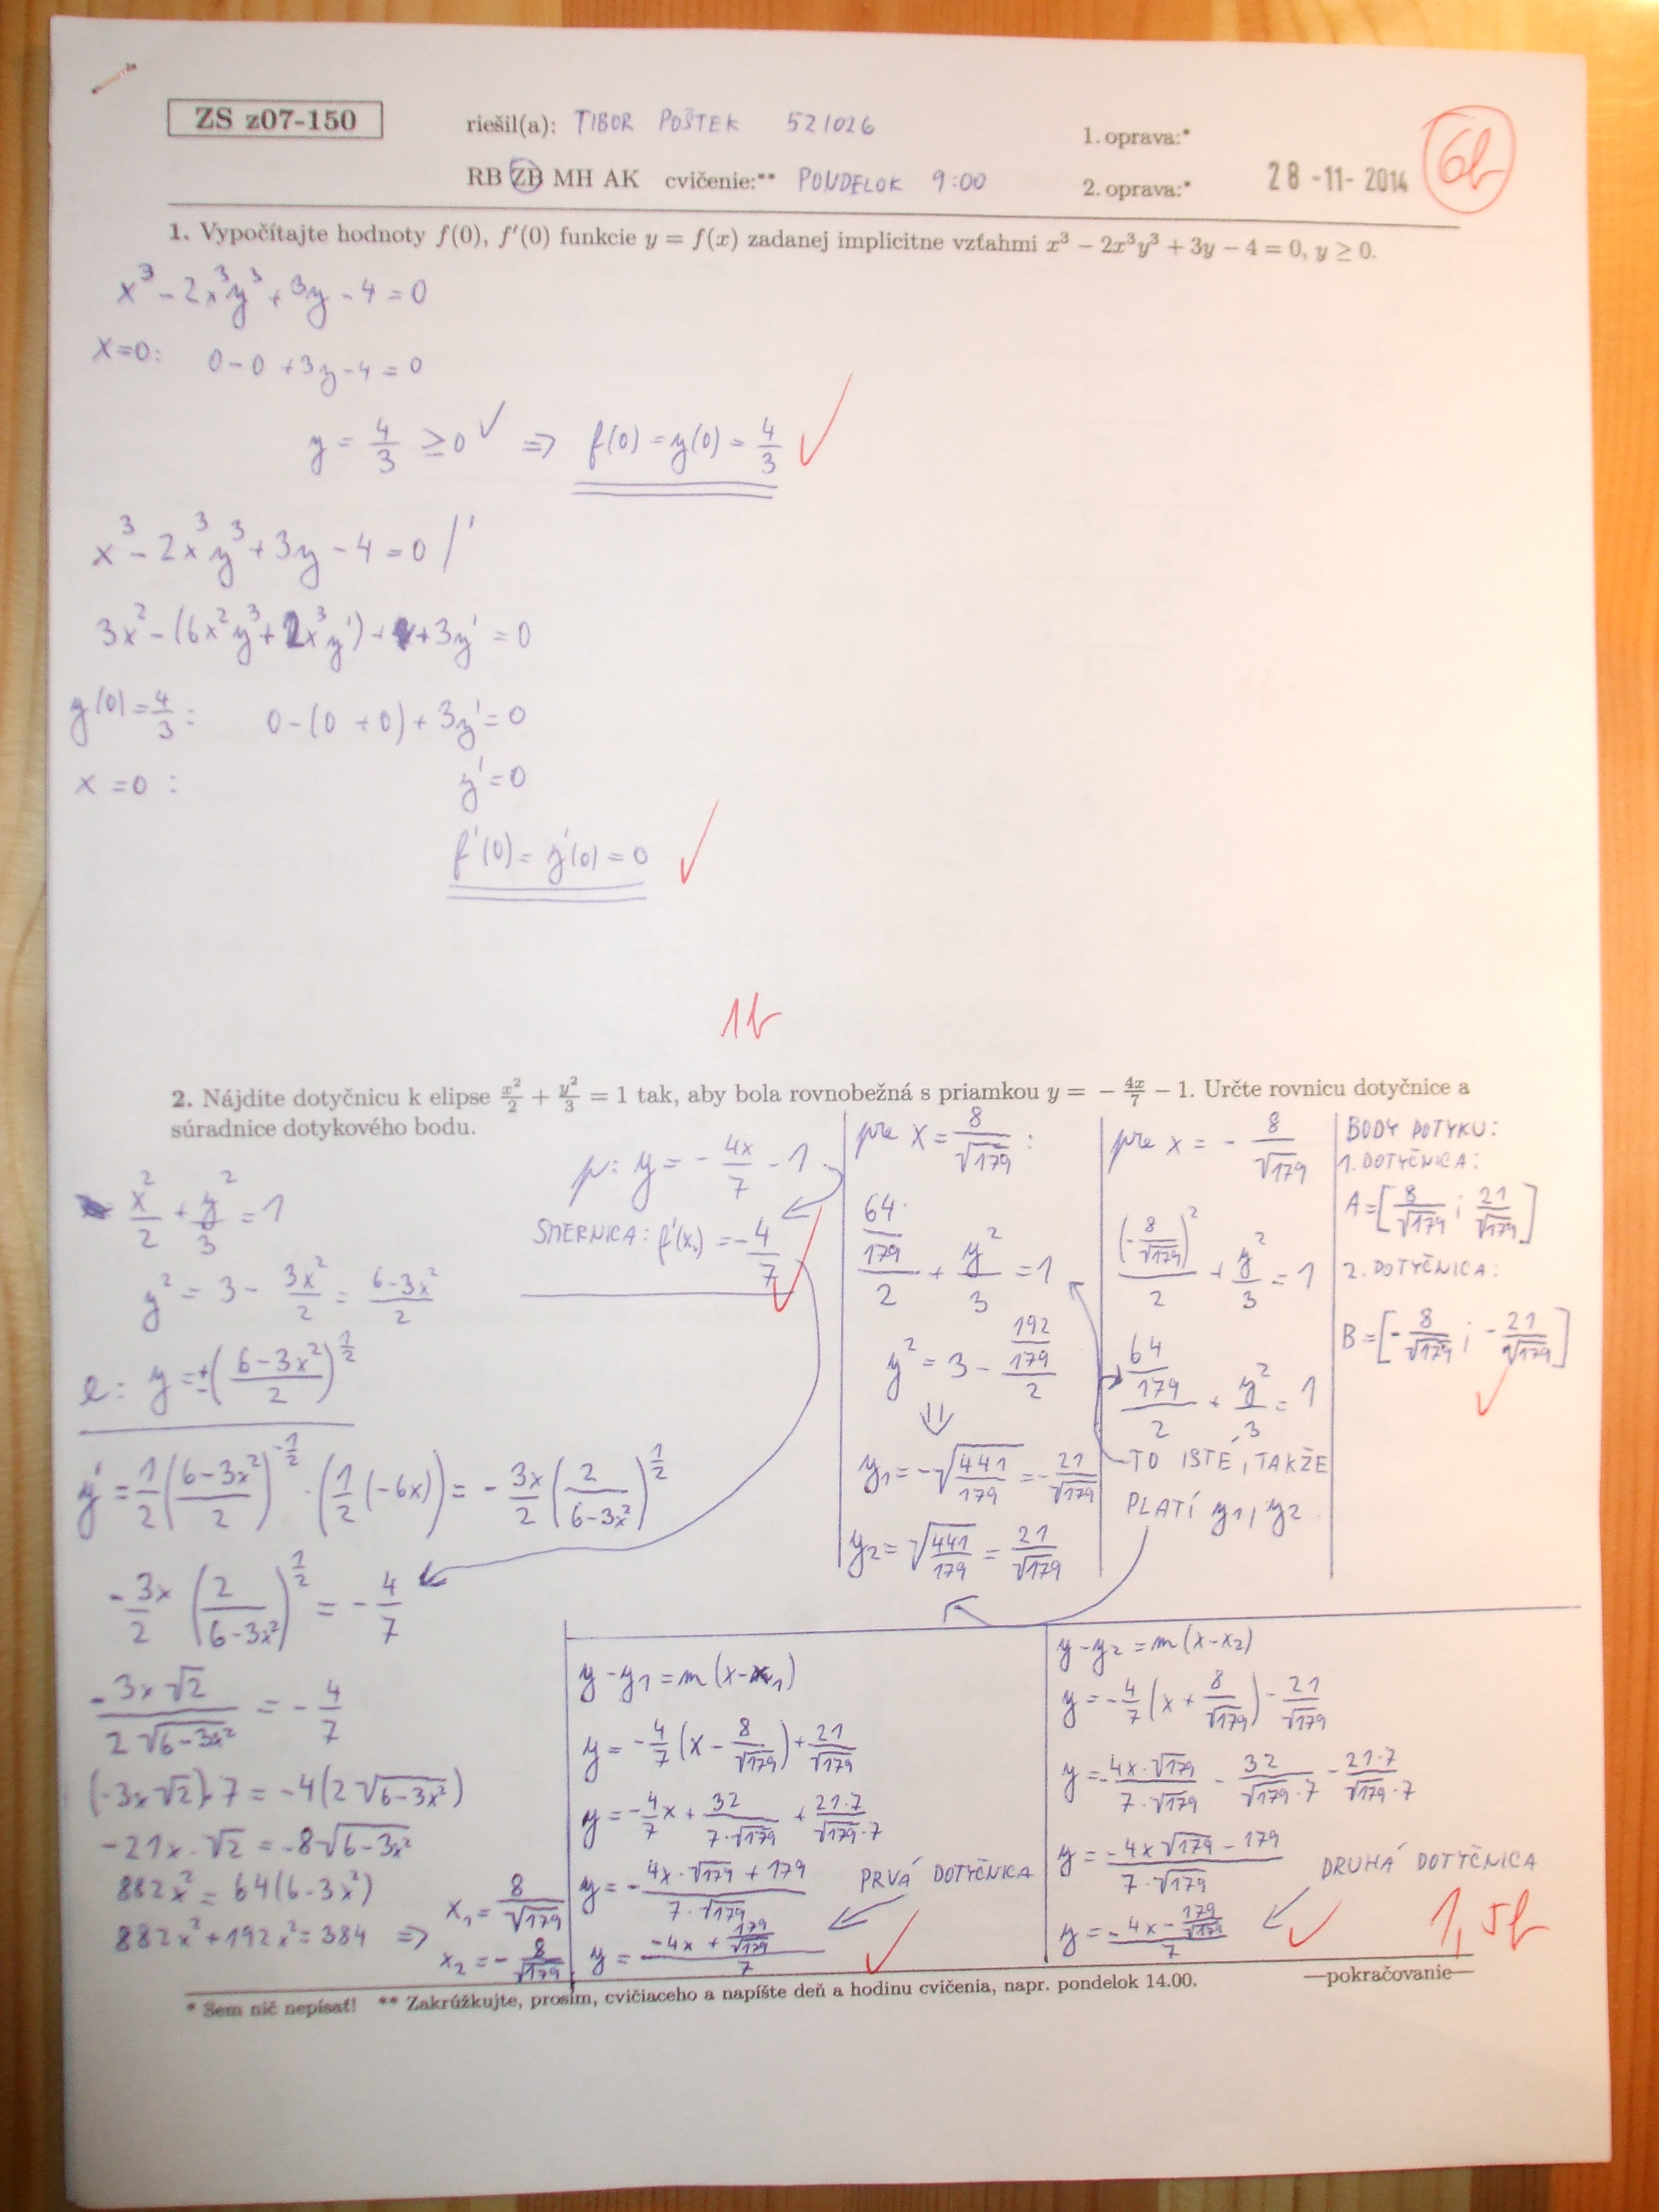 ZS z07-150
riešil(a): TIBOR POŠTEK 521026
1. oprava:*
6b
RB ZB MH AK cvičenie:** PONDELOK 9:00
2. oprava:*
28-11-2014
1. Vypočítajte hodnoty f(0), f′(0) funkcie y = f(x) zadanej implicitne vzťahmi x³ − 2x³y³ + 3y − 4 = 0, y ≥ 0.
x³ − 2x³y³ + 3y − 4 = 0
x=0: 0 − 0 + 3y − 4 = 0
y = 4/3 ≥ 0 ✓ ⇒ f(0) = y(0) = 4/3 ✓
x³ − 2x³y³ + 3y − 4 = 0 /′
3x² − (6x²y³ + 2x³y′) + 3y′ = 0
y(0) = 4/3 : 0 − (0 + 0) + 3y′ = 0
x = 0 : y′ = 0
f′(0) = y′(0) = 0 ✓
1b
2. Nájdite dotyčnicu k elipse x²/2 + y²/3 = 1 tak, aby bola rovnobežná s priamkou y = − 4x/7 − 1. Určte rovnicu dotyčnice a
súradnice dotykového bodu.
x²/2 + y²/3 = 1
y² = 3 − 3x²/2 = (6−3x²)/2
e: y = ±((6−3x²)/2)^(1/2)
p: y = − 4x/7 − 1
SMERNICA: f′(x₀) = −4/7 ✓
y′ = 1/2 ((6−3x²)/2)^(−1/2) · (1/2 (−6x)) = − 3x/2 (2/(6−3x²))^(1/2)
− 3x/2 (2/(6−3x²))^(1/2) = − 4/7
−3x√2 / 2√(6−3x²) = − 4/7
(−3x√2)·7 = −4(2√(6−3x²))
−21x·√2 = −8√(6−3x²)
882x² = 64(6−3x²)
882x² + 192x² = 384 ⇒ x₁ = 8/√179
x₂ = − 8/√179
pre x = 8/√179 :
(64/179)/2 + y²/3 = 1
y² = 3 − (192/179)/2
⇓
y₁ = −√(441/179) = −21/√179
y₂ = √(441/179) = 21/√179
pre x = − 8/√179
(−8/√179)²/2 + y²/3 = 1
(64/179)/2 + y²/3 = 1
TO ISTÉ, TAKŽE
PLATÍ y₁, y₂
BODY DOTYKU:
1. DOTYČNICA:
A = [8/√179 ; 21/√179]
2. DOTYČNICA:
B = [−8/√179 ; −21/√179] ✓
y − y₁ = m(x − x₁)
y = −4/7 (x − 8/√179) + 21/√179
y = −4/7 x + 32/(7·√179) + 21·7/(√179·7)
y = − (4x·√179 + 179)/(7·√179)
PRVÁ DOTYČNICA
y = (−4x + 179/√179)/7 ✓
y − y₂ = m(x − x₂)
y = −4/7 (x + 8/√179) − 21/√179
y = −4x·√179/(7·√179) − 32/(√179·7) − 21·7/(√179·7)
y = (−4x√179 − 179)/(7·√179)
DRUHÁ DOTYČNICA
y = (−4x − 179/√179)/7 ✓
1,5b
—pokračovanie—
* Sem nič nepísať! ** Zakrúžkujte, prosím, cvičiaceho a napíšte deň a hodinu cvičenia, napr. pondelok 14.00.